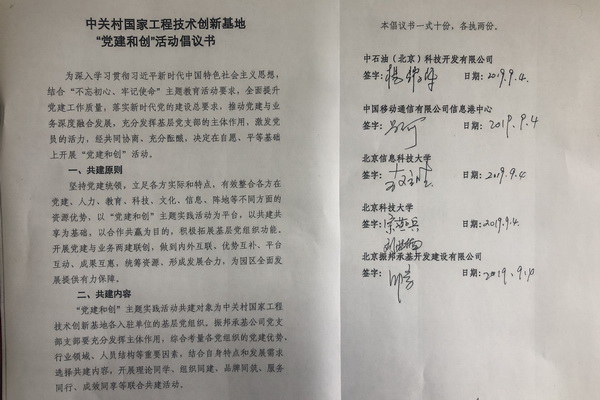 中关村国家工程技术创新基地
“党建和创”活动倡议书
为深入学习贯彻习近平新时代中国特色社会主义思想，
结合“不忘初心、牢记使命”主题教育活动要求，全面提升
党建工作质量，落实新时代党的建设总要求，推动党建与业
务深度融合发展，充分发挥基层党支部的主体作用，激发党
员的活力，经共同协商、充分酝酿，决定在自愿、平等基础
上开展“党建和创”活动。
一、共建原则
坚持党建统领，立足各方实际和特点，有效整合各方在
党建、人力、教育、科技、文化、信息、阵地等不同方面的
资源优势，以“党建和创”主题实践活动为平台，以共建共
享为基础，以合作共赢为目的，积极拓展基层党组织功能，
开展党建与业务两建联创，做到内外互联、优势互补、平台
互动、成果互惠，统筹资源、形成发展合力，为园区全面发
展提供有力保障。
二、共建内容
“党建和创”主题实践活动共建对象为中关村国家工程
技术创新基地各入驻单位的基层党组织。振邦承基公司党支
部支部要充分发挥主体作用，综合考量各党组织的党建优势、
行业领域、人员结构等重要因素，结合自身特点和发展需求
选择共建内容，开展理论同学、组织同建、品牌同筑、服务
同行、成效同享等联合共建活动。
本倡议书一式十份，各执两份。
中石油（北京）科技开发有限公司
签字： 日期：2019.9.4.
中国移动通信有限公司信息港中心
签字： 日期：2019.9.4
北京信息科技大学
签字： 日期：2019.9.4
北京科技大学
签字： 日期：2019.9.4.
北京振邦承基开发建设有限公司
签字： 日期：2019.9.